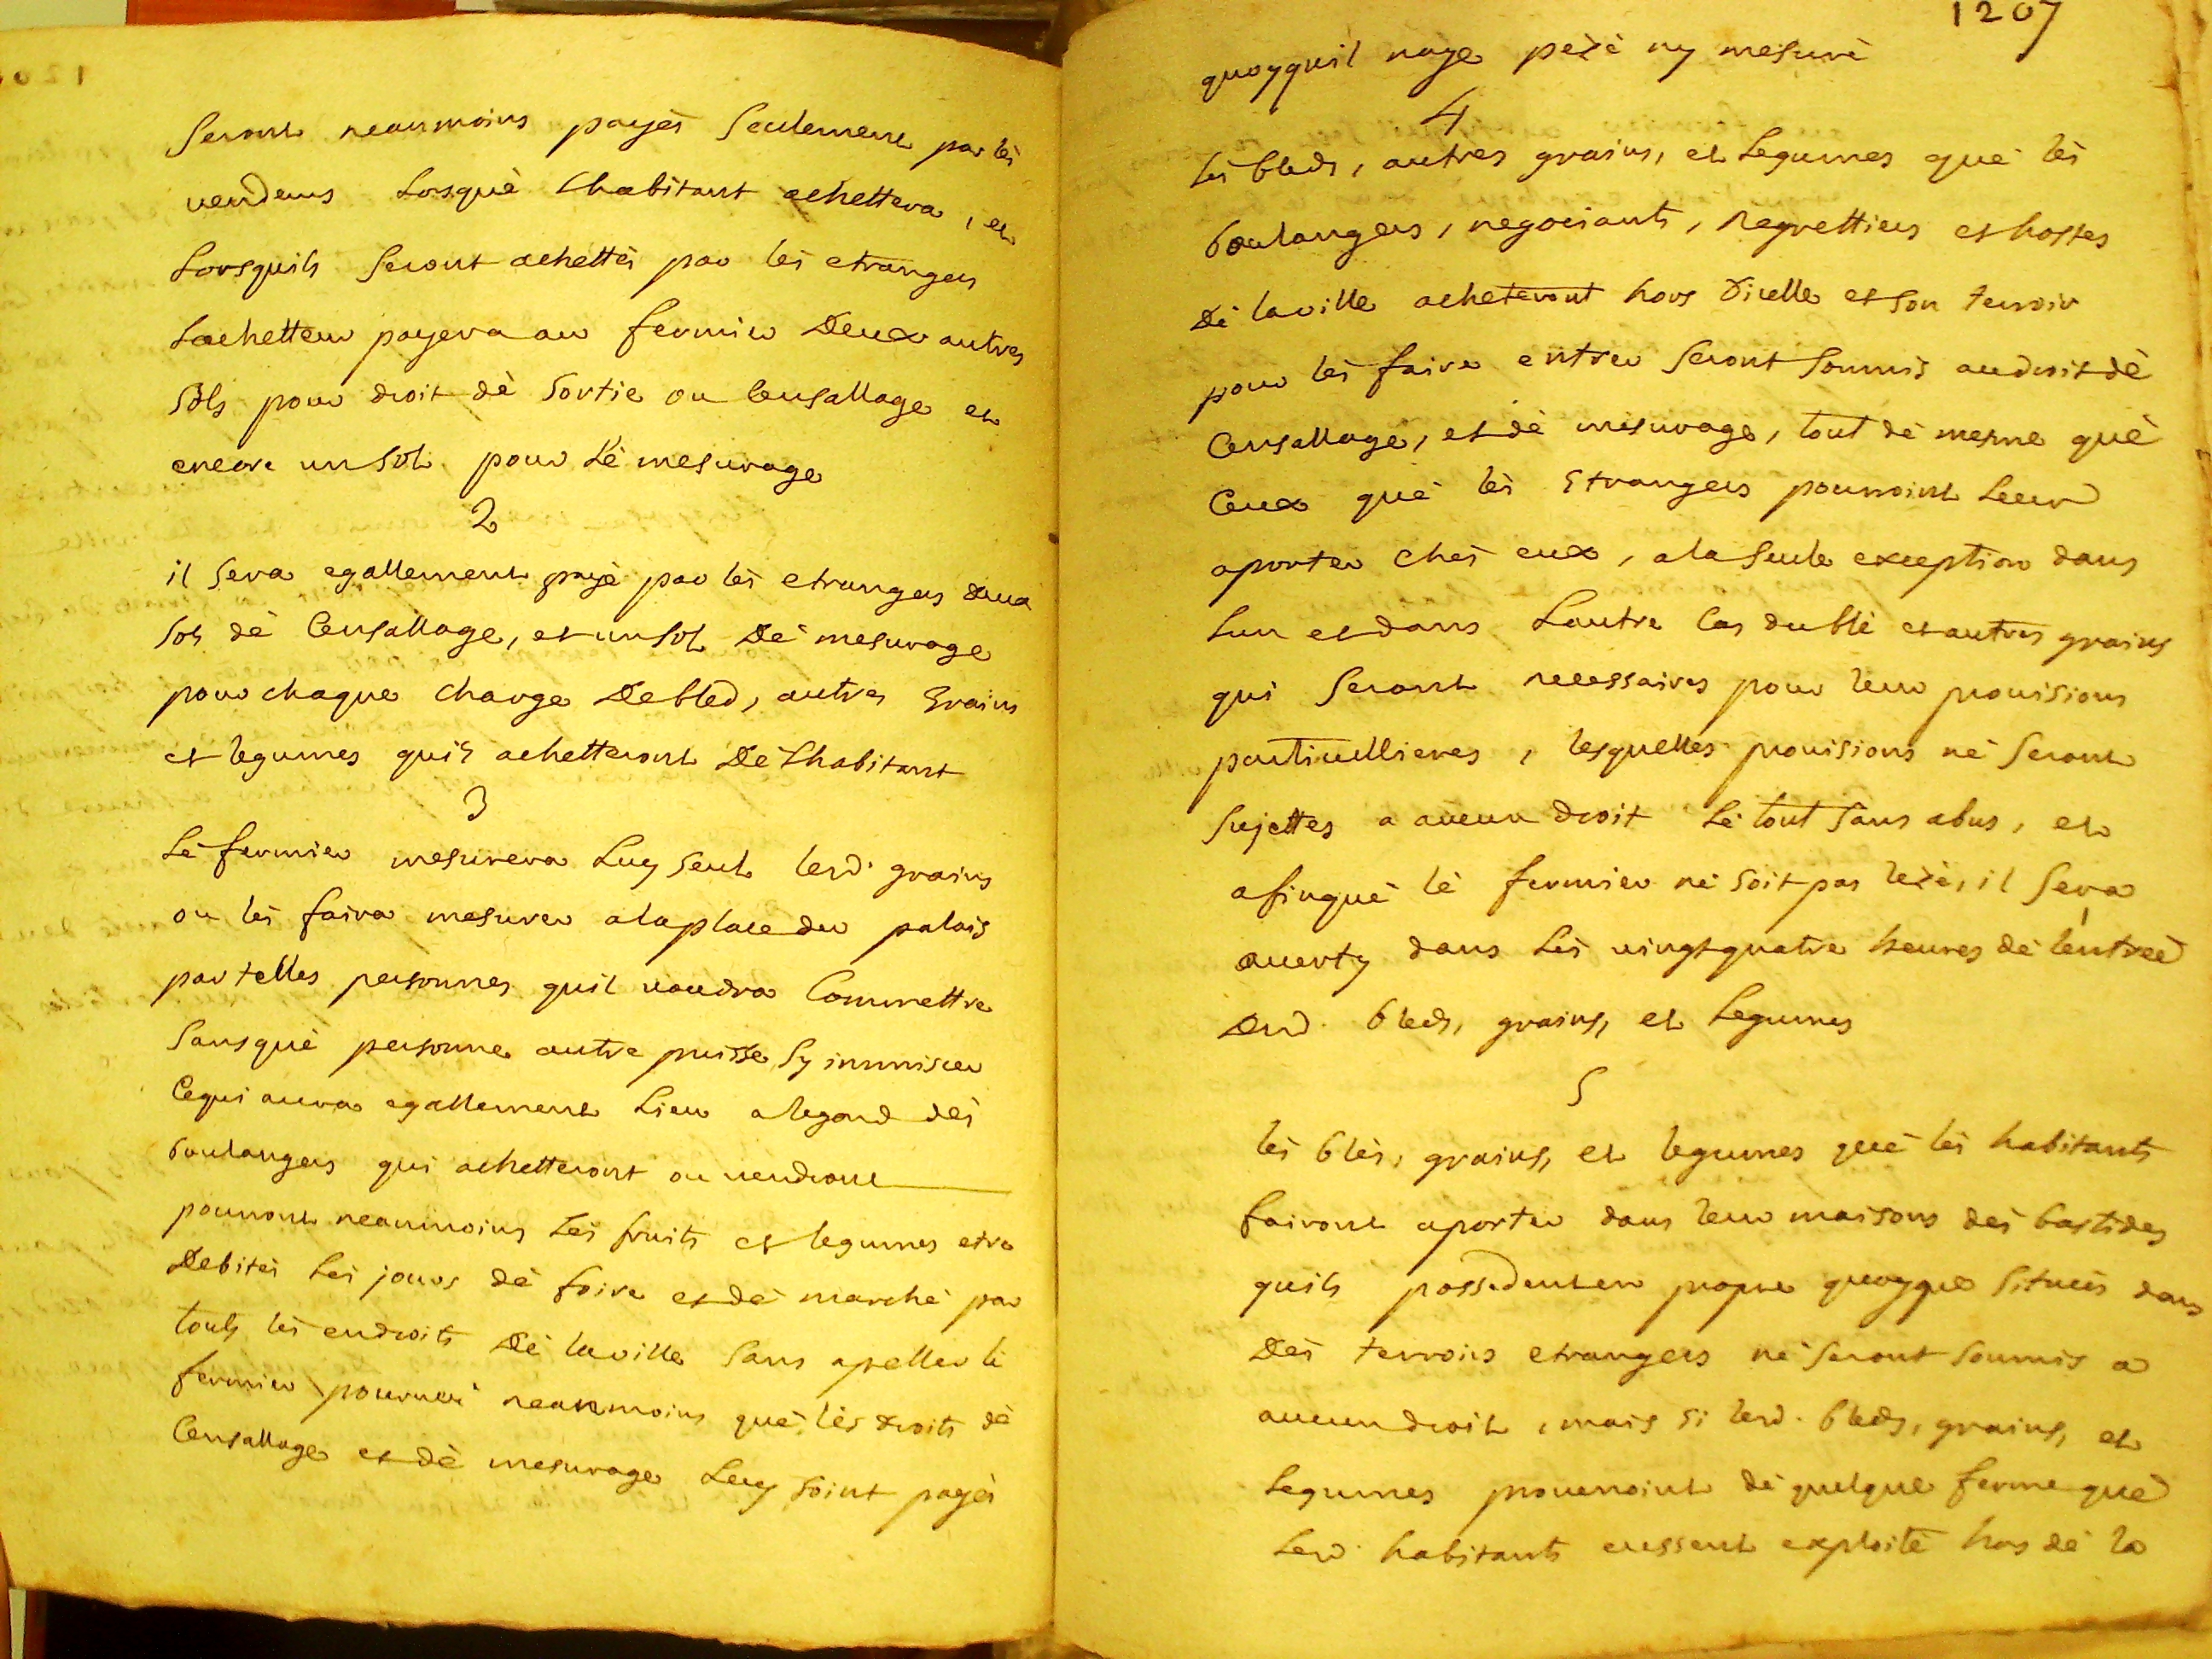 seront neanmoins payés seulement par lès
vendeurs lorsquè lhabitant achettera, et
lorsquils seront achettés par lès etrangers
lachetteur payera au fermier deux autres
sols pour droit dè sortie ou censallage et
encore un sol pour lè mesurage
2
il sera egallement payè par lès etrangers deux
sols dè censallage, et un sol dè mesurage
pour chaque charge de bled, autres grains
et legumes quils achetteront dè lhabitant
3
lè fermier mesurera luy seul lesd. grains
ou lès faira mesurer a la place du palais
par telles personnes quil voudra commettre
sans què personne autre puisse sy immiscer
ce qui aura egallement lieu a legard dès
boulangers qui achetteront ou vendront
pourront neanmoins lès fruits et legumes etre
debités lès jours dè foire et dè marché par
touts lès endroits dè la ville sans apeller lè
fermier pourveu neanmoins què lès droits dè
censallage et dè mesurage luy soint payés
1207
quoyquil naye pezè ny mesurè
4
lès bleds, autres grains, et legumes què lès
boulangers, negociants, regrettiers et hostes
dè la ville acheteront hors dicelle et son terroir
pour lès faire entrer seront soumis au droit dè
censallage, et dè mesurage, tout dè mesme què
ceux què lès etrangers pourroint leur
aporter chès eux, a la seule exception dans
lun et dans lautre cas du blè et autres grains
qui seront necessaires pour leur provisions
particullieres, lesquelles provisions nè seront
sujettes a aucun droit lè tout sans abus, et
afin què lè fermier nè soit pas lezè, il sera
averty dans lès vingt quatre heures dè lentreè
desd. bleds, grains, et legumes
5
lès blès, grains, et legumes què lès habitants
fairont aporter dans leur maisons dès bastides
quils possedent en propre quoyque situeès dans
dès terroirs etrangers nè seront soumis a
aucun droit, mais si lesd. bleds, grains, et
legumes provenoint dè quelque ferme què
lesd. habitants eussent exploitè hors dè la